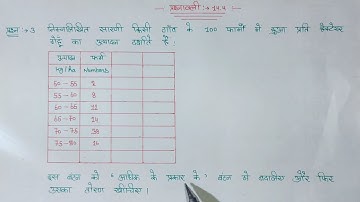 प्रश्नावली :→ 14.4
प्रश्न → 3 निम्नलिखित सारणी किसी गाँव के 100 फार्मों में हुआ प्रति हेक्टेयर
गेहूँ का उत्पादन दर्शाते हैं :
उत्पादन फार्म
Kg/ha Numbers
50 - 55 2
55 - 60 8
60 - 65 12
65 - 70 24
70 - 75 38
75 - 80 16
इस बंटन को "अधिक के प्रकार के" बंटन में बदलिए और फिर
उसका तोरण खींचिए।